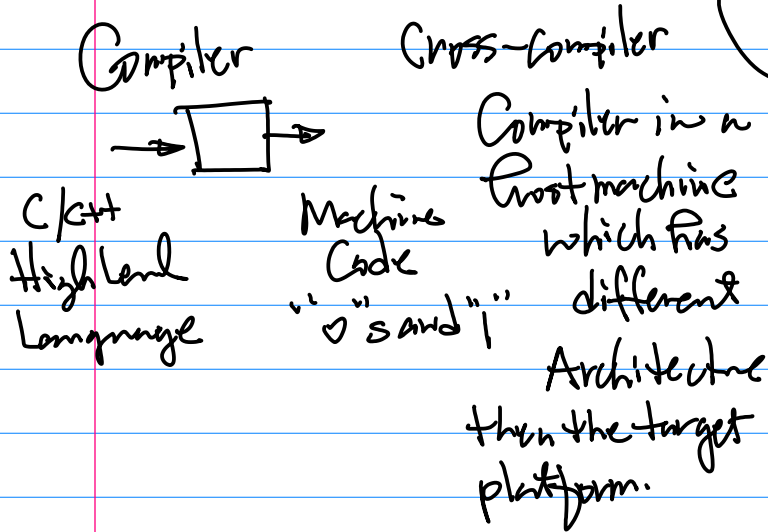 Compiler
C/C++
High Level
Language
Machine
Code
"0"s and "1"
Cross-compiler
Compiler in a
host machine
which has
different
Architecture
then the target
platform.